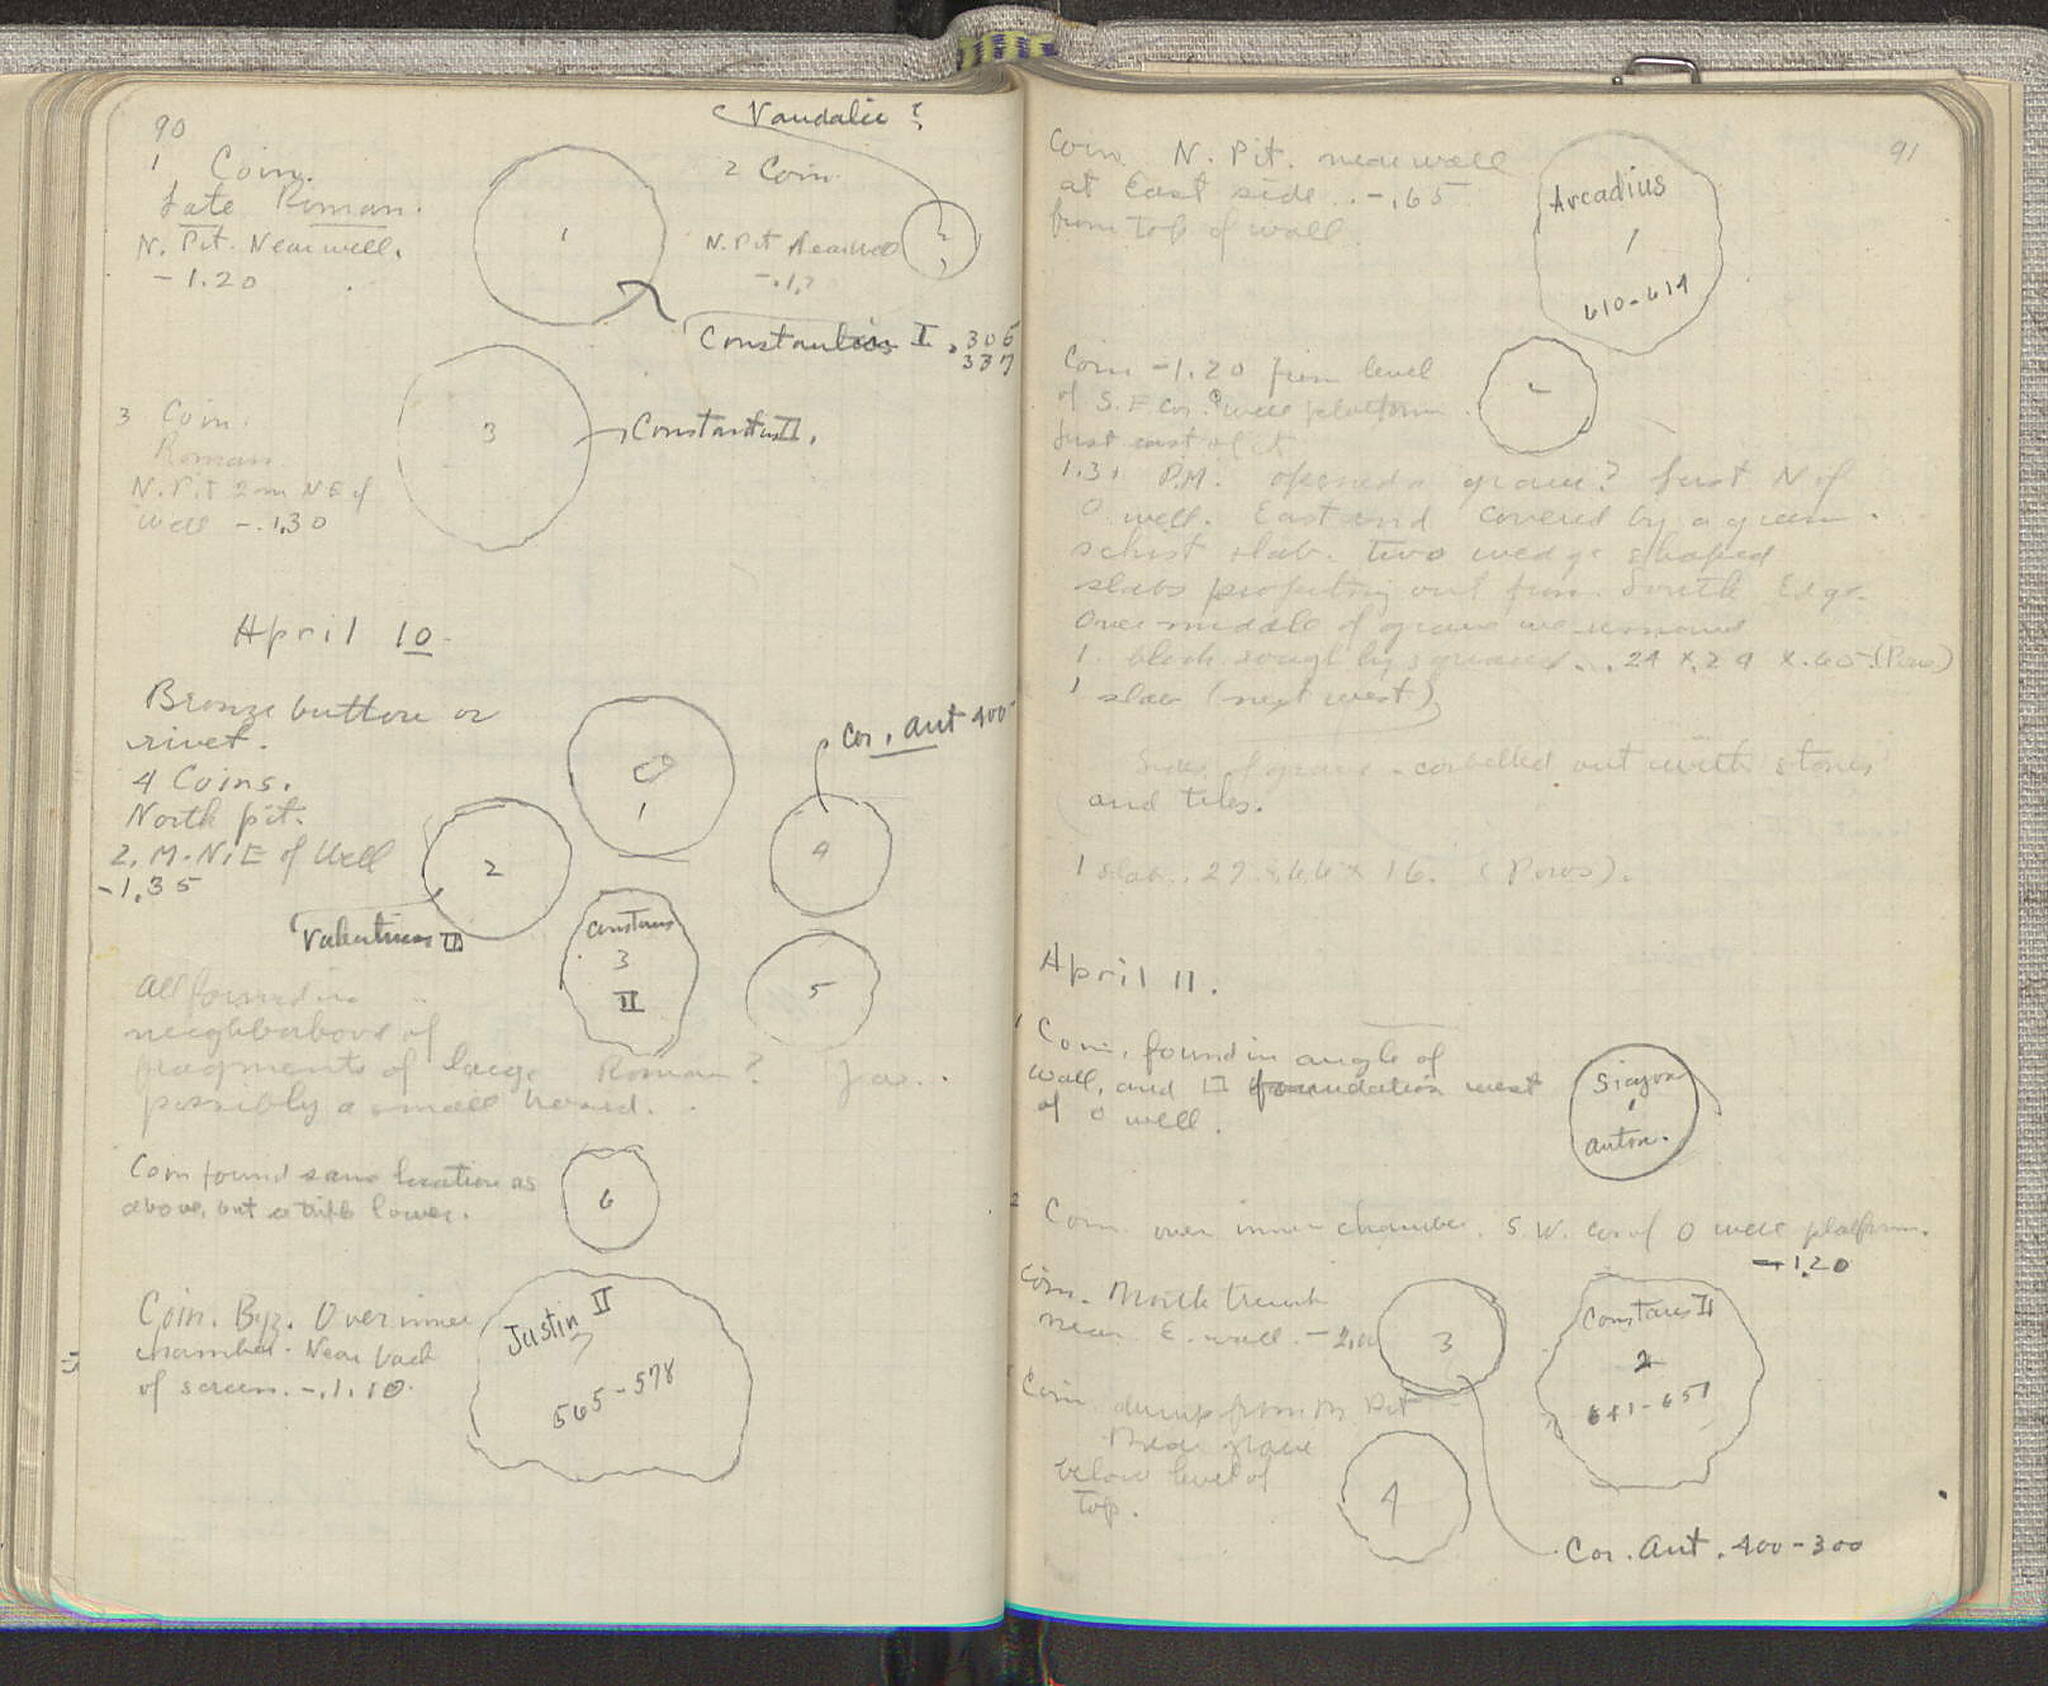 90
Vandalic ?
1 Coin.
Late Roman.
N. Pit. Near well.
- 1.20
1
2 Coin
N. Pit Near well
2
Constantius I, 306
337
3 Coin.
Roman
N. Pit 2 m NE of
well -.1.30
3
Constantius II.
April 10.
Bronze button or
rivet.
4 Coins.
North pit.
2. M. N.E of Well
-1.35
1
Cor. Ant 400
4
2
Valentinian II
Constans
3
II
5
All found in
neighborhood of
fragments of large Roman? Jar..
possibly a small hoard.
Coin found same location as
above, but a trifle lower.
6
Coin. Byz. Over inner
chamber. Near back
of screen. -.1.10.
Justin II
7
565-578
91
Coin N. Pit. near well
at East side . -.65
from top of wall.
Arcadius
1
610-614
Coin -1.20 from level
of S.E Cor. of well platform.
Just east of it
2
1.31 P.M. opened a grave? Just N of
O well. East end covered by a green
schist slab. Two wedge shaped
slabs projecting out from South Edge.
Over middle of grave we removed
1. block roughly squared .. .24 x .29 x .65. (Poros)
1 slab (next west)
Sides of grave corbelled out with stones
and tiles.
1 slab . 27 x .66 x 16. (Poros).
April 11.
1 Coin, found in angle of
wall, and foundation west
of O well.
Sicyon
1
Anton.
2 Coin over inner chamber. S.W. Cor of O well platform.
-1.20
Coin. North trench
near E. wall. -2.00
3
Constans II
2
641-651
Coin dump from N. Pit
Near grave
below level of
top.
4
Cor. Ant. 400-300